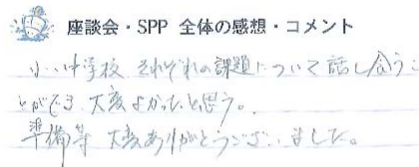 座談会・SPP 全体の感想・コメント
小・中学校 それぞれの課題について話し合うこ
とができ 大変よかったと思う。
準備等 大変ありがとうございました。